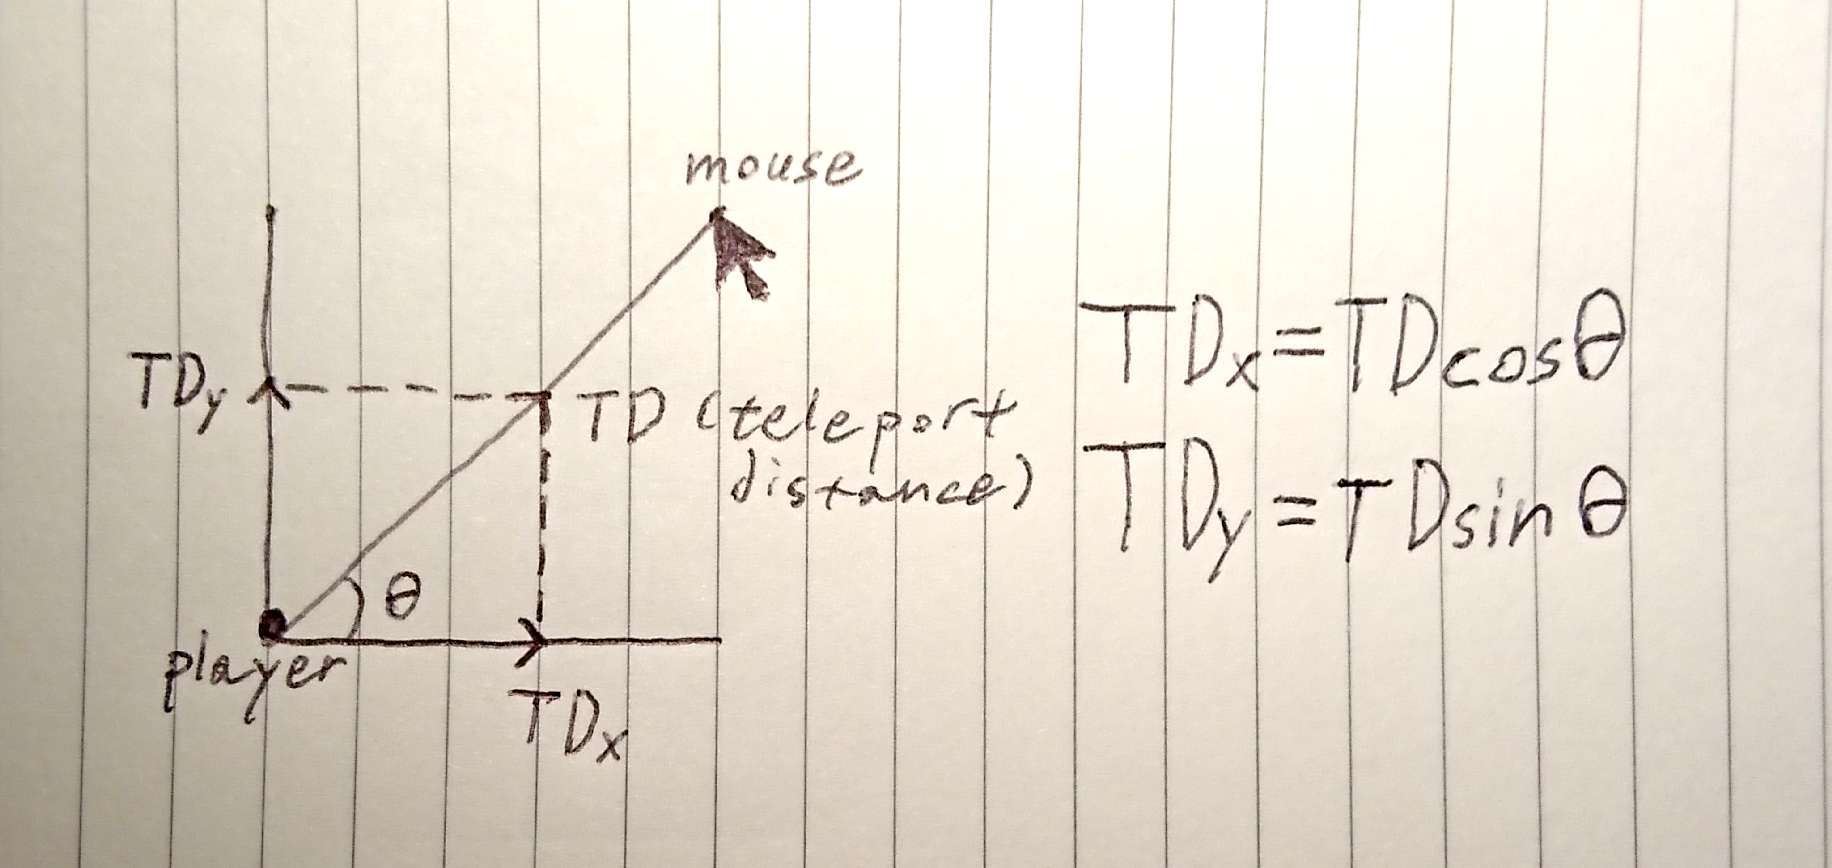 mouse
TDy
TD (teleport
distance)
θ
player
TDx
TDx=TDcosθ
TDy=TDsinθ